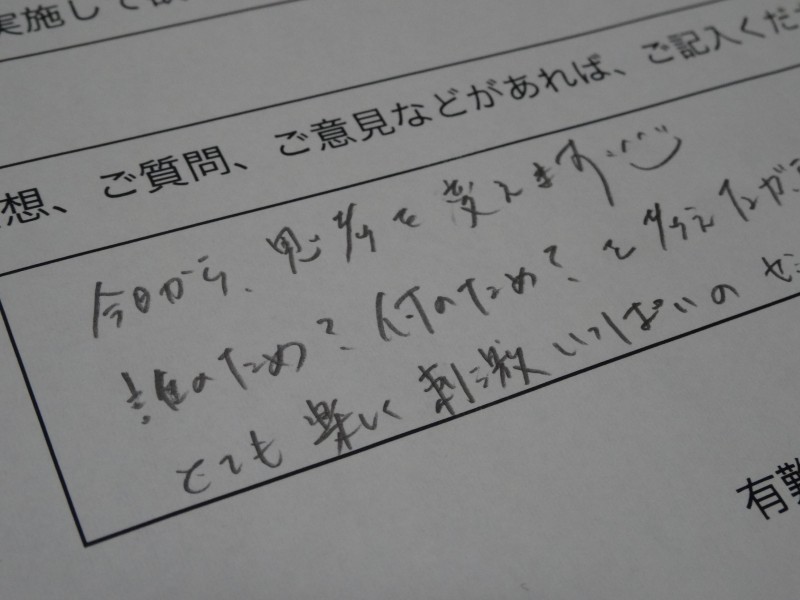 実施して
想、ご質問、ご意見などがあれば、ご記入くだ
今日から、思考を変えます
誰のため？何のため？を考えながら
とても楽しく刺激いっぱいのセ
有難